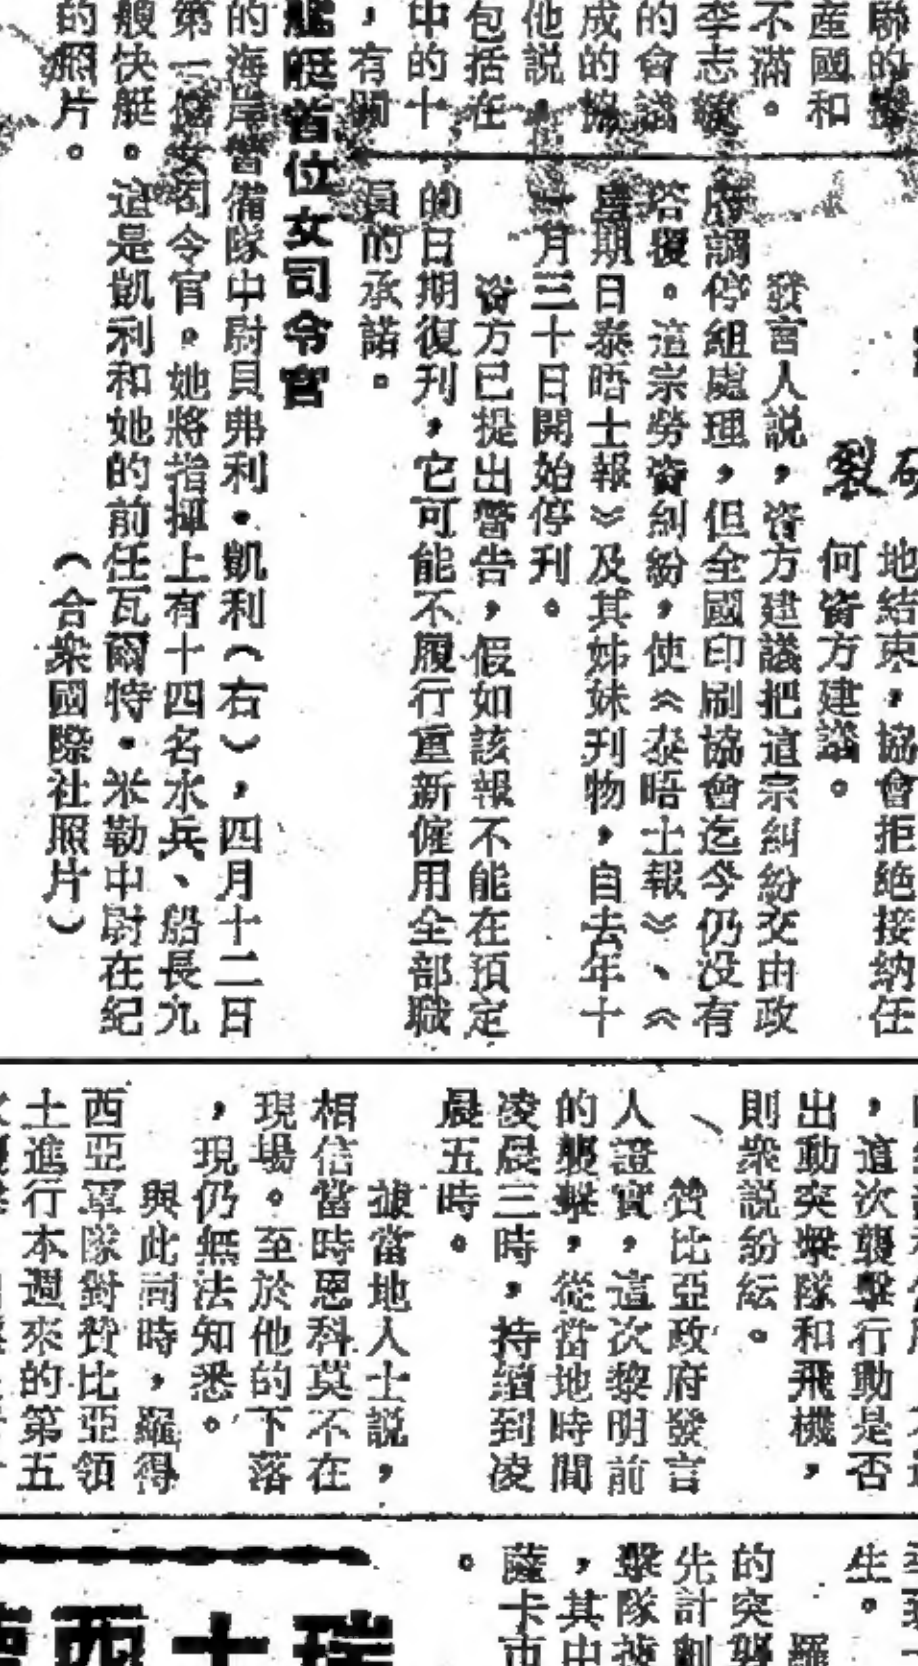 聯的
產國和
不滿。
李志
的會議
成的協
他說，
包括在
中的十
，有關
裂
地結束，協會拒絕接納任
何資方建議。
發言人說，資方建議把這宗糾紛交由政
府調停組處理，但全國印刷協會迄今仍没有
答覆。這宗勞資糾紛，使《泰晤士報》、《
星期日泰晤士報》及其姊妹刊物，自去年十
一月三十日開始停刊。
資方已提出警告，假如該報不能在預定
的日期復刋，它可能不履行重新僱用全部職
員的承諾。
艦艇首位女司令官
的海岸警備隊中尉貝弗利・凱利（右），四月十二日
第一個女司令官。她將指揮上有十四名水兵、船長九
艘快艇。這是凱利和她的前任瓦爾特・米勒中尉在紀
的照片。（合衆國際社照片）
，這次襲擊行動是否
出動突擊隊和飛機，
則衆説紛紜。
贊比亞政府發言
人證實，這次黎明前
的襲擊，從當地時間
凌晨三時，持續到凌
晨五時。
據當地人士説，
相信當時恩科莫不在
現場。至於他的下落
，現仍無法知悉。
與此同時，羅得
西亞軍隊對贊比亞領
土進行本週來的第五
生。
羅
的突擊
先計劃
擊隊
，其中
薩卡市
。
瑞士西